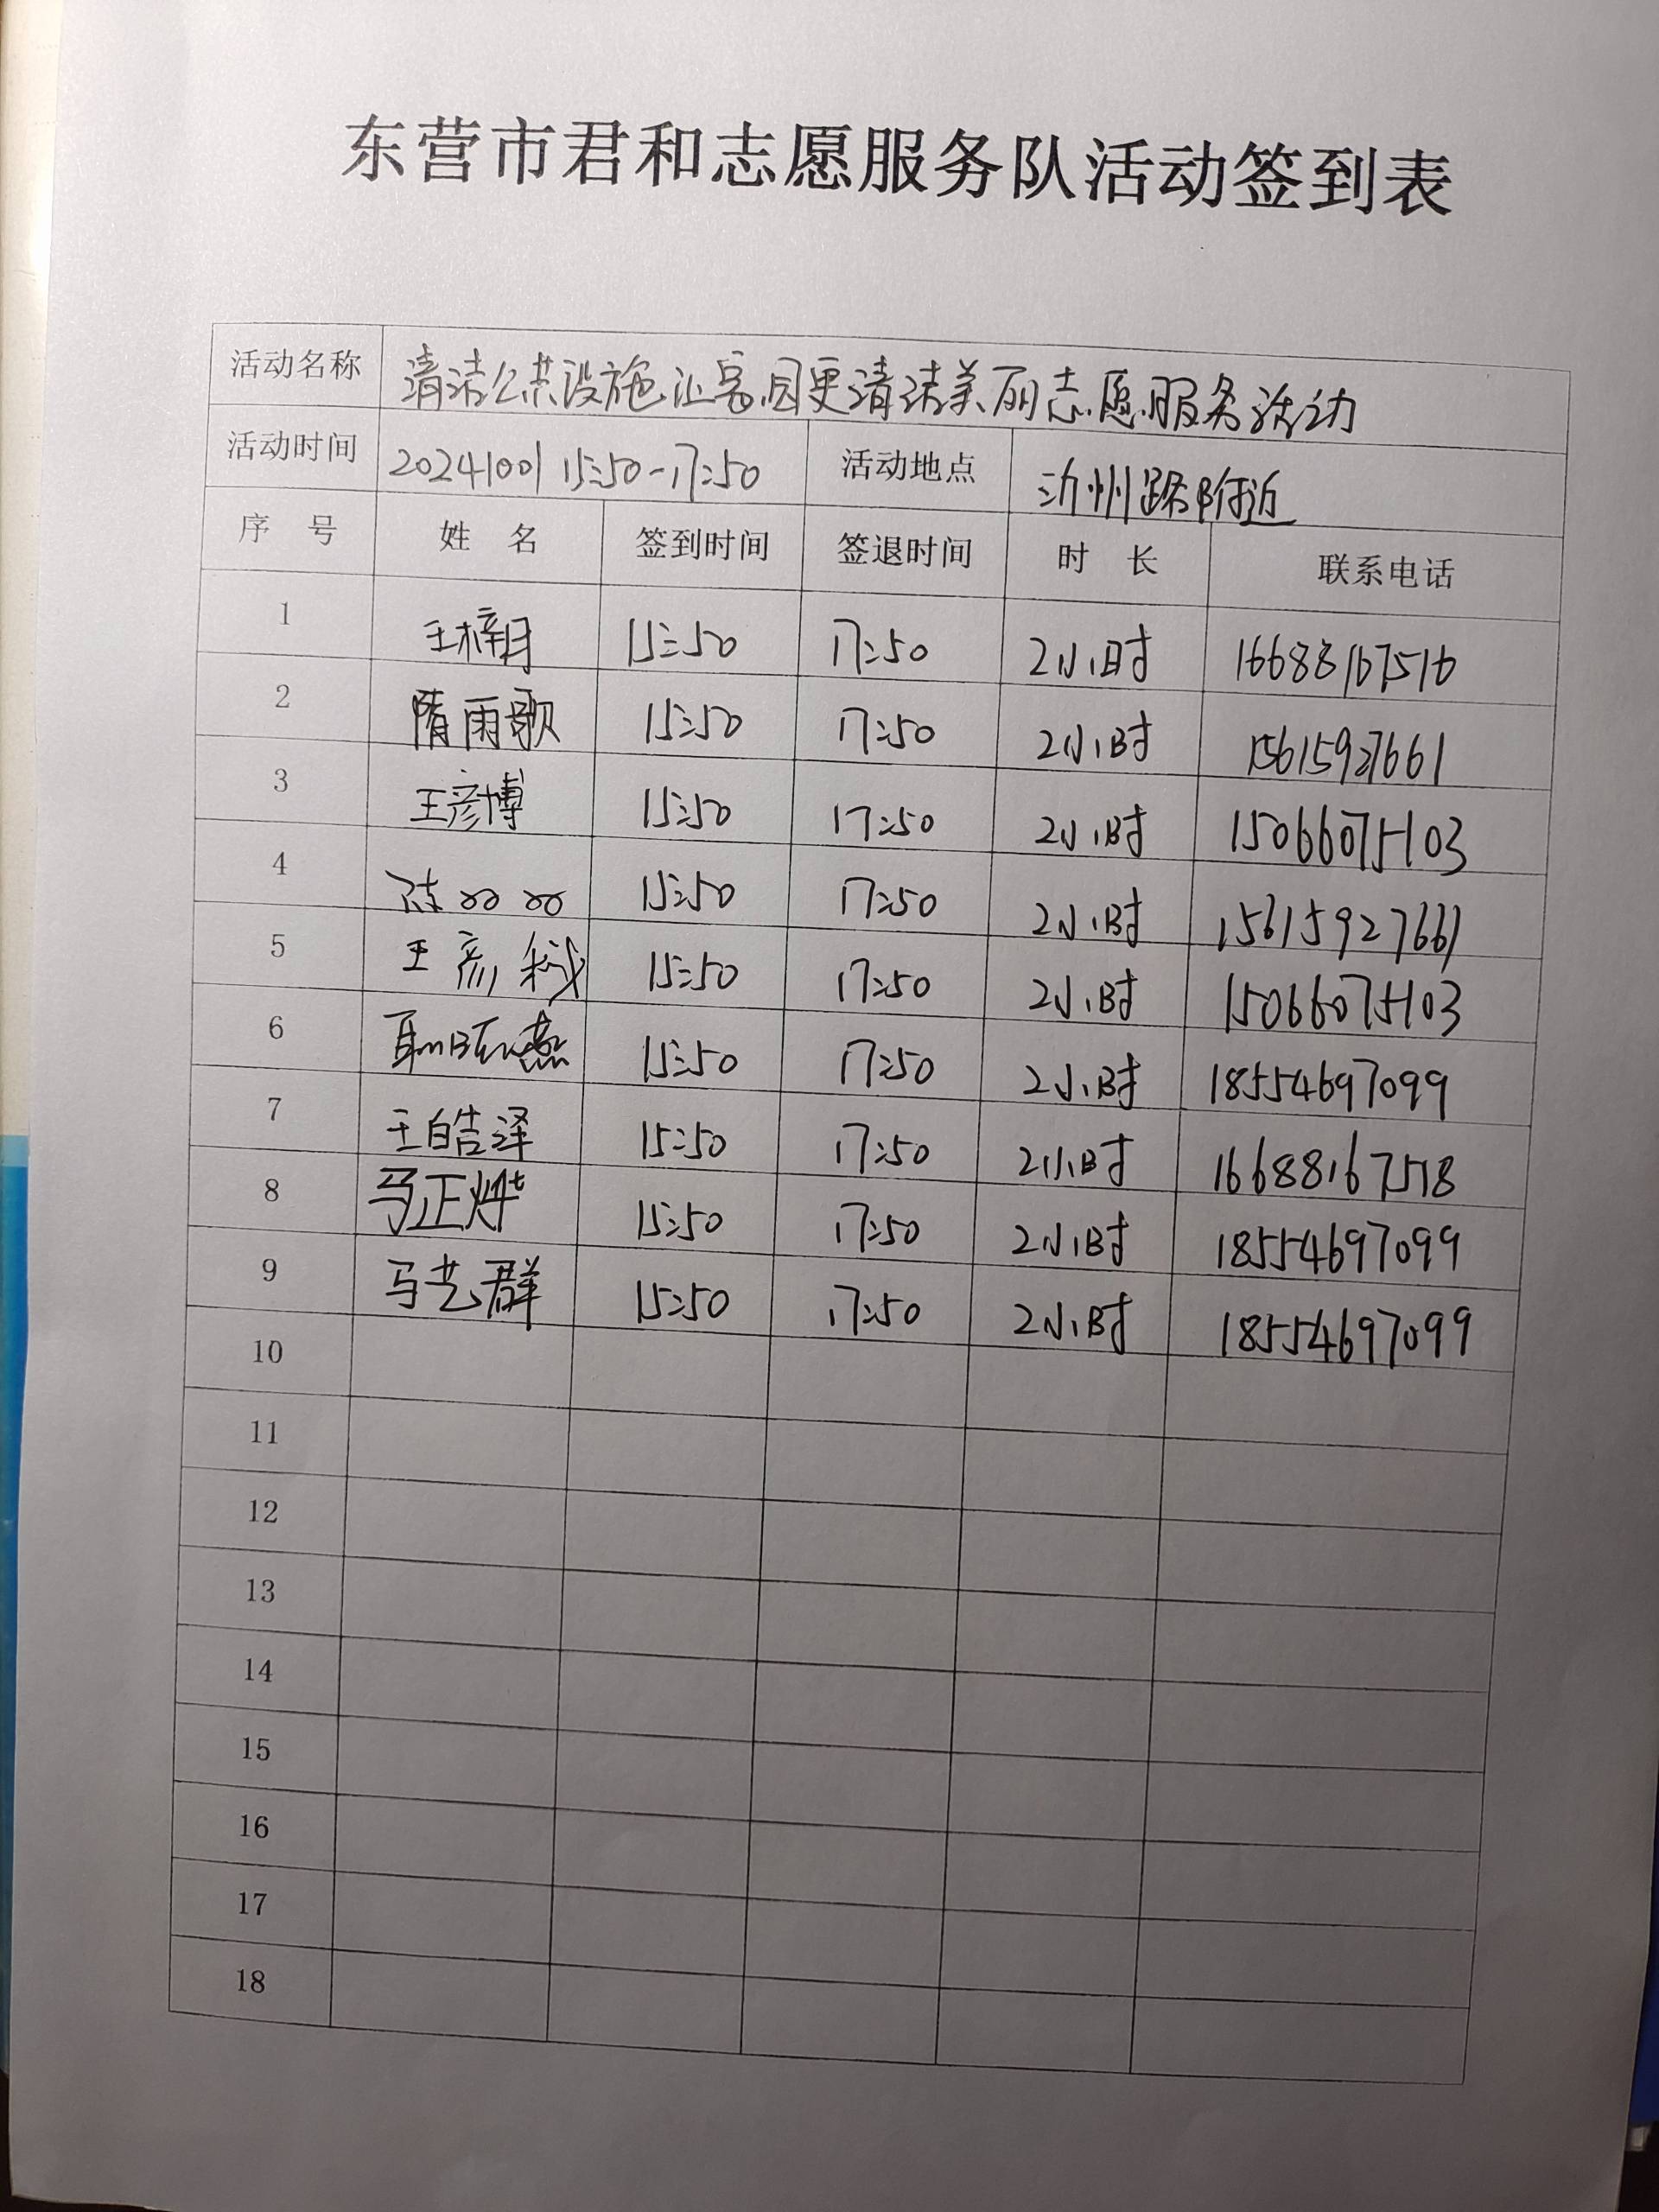 东营市君和志愿服务队活动签到表
活动名称 清洁公共设施,让家园更清洁美丽志愿服务活动
活动时间 20241001 15:50-17:50 活动地点 沂州路附近
序 号 姓 名 签到时间 签退时间 时 长 联系电话
1 王梓月 15:50 17:50 2小时 16688167516
2 隋雨歌 15:50 17:50 2小时 15615927661
3 王彦博 15:50 17:50 2小时 15066075103
4 陈 15:50 17:50 2小时 15615927661
5 王彦 15:50 17:50 2小时 15066075103
6 耿 燕 15:50 17:50 2小时 18554697099
7 王皓泽 15:50 17:50 2小时 16688167518
8 马正烨 15:50 17:50 2小时 18554697099
9 马艺群 15:50 17:50 2小时 18554697099
10
11
12
13
14
15
16
17
18